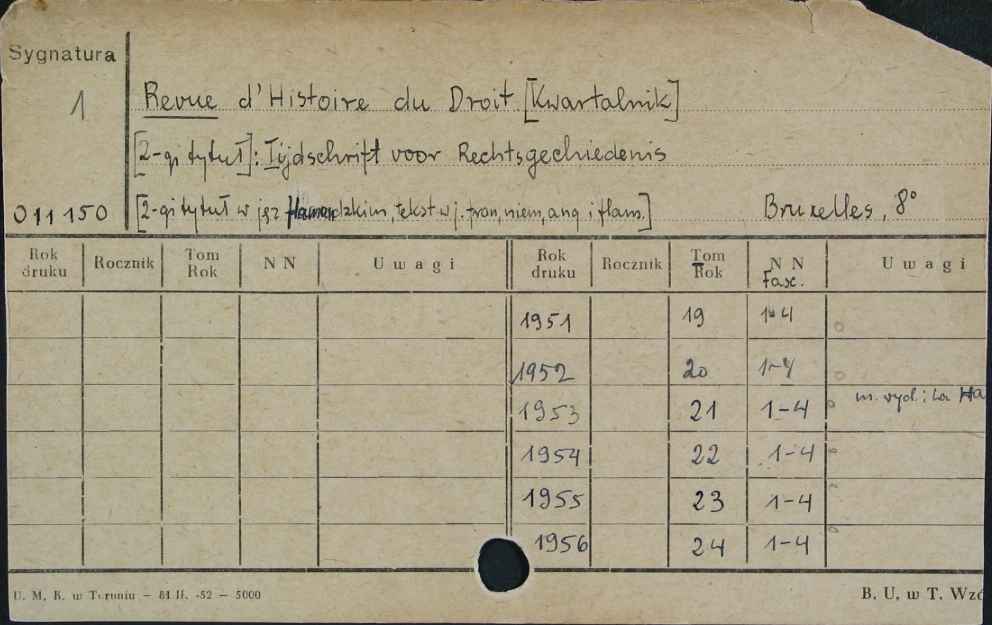 Sygnatura
1
Revue d'Histoire du Droit [Kwartalnik]
[2-gi tytuł]: Tijdschrift voor Rechtsgechiedenis
011150 [2-gi tytuł w jęz flamandzkim, tekst w j. fran, niem, ang i flam.] Bruxelles, 8°
Rok druku Rocznik Tom Rok NN Uwagi Rok druku Rocznik Tom Rok NN Fasc. Uwagi
1951 19 1-4
1952 20 1-4
m. wyd.: La Ha
1953 21 1-4
1954 22 1-4
1955 23 1-4
1956 24 1-4
U. M. K. w Toruniu — 81 II. -52 — 5000 B. U. w T. Wzó